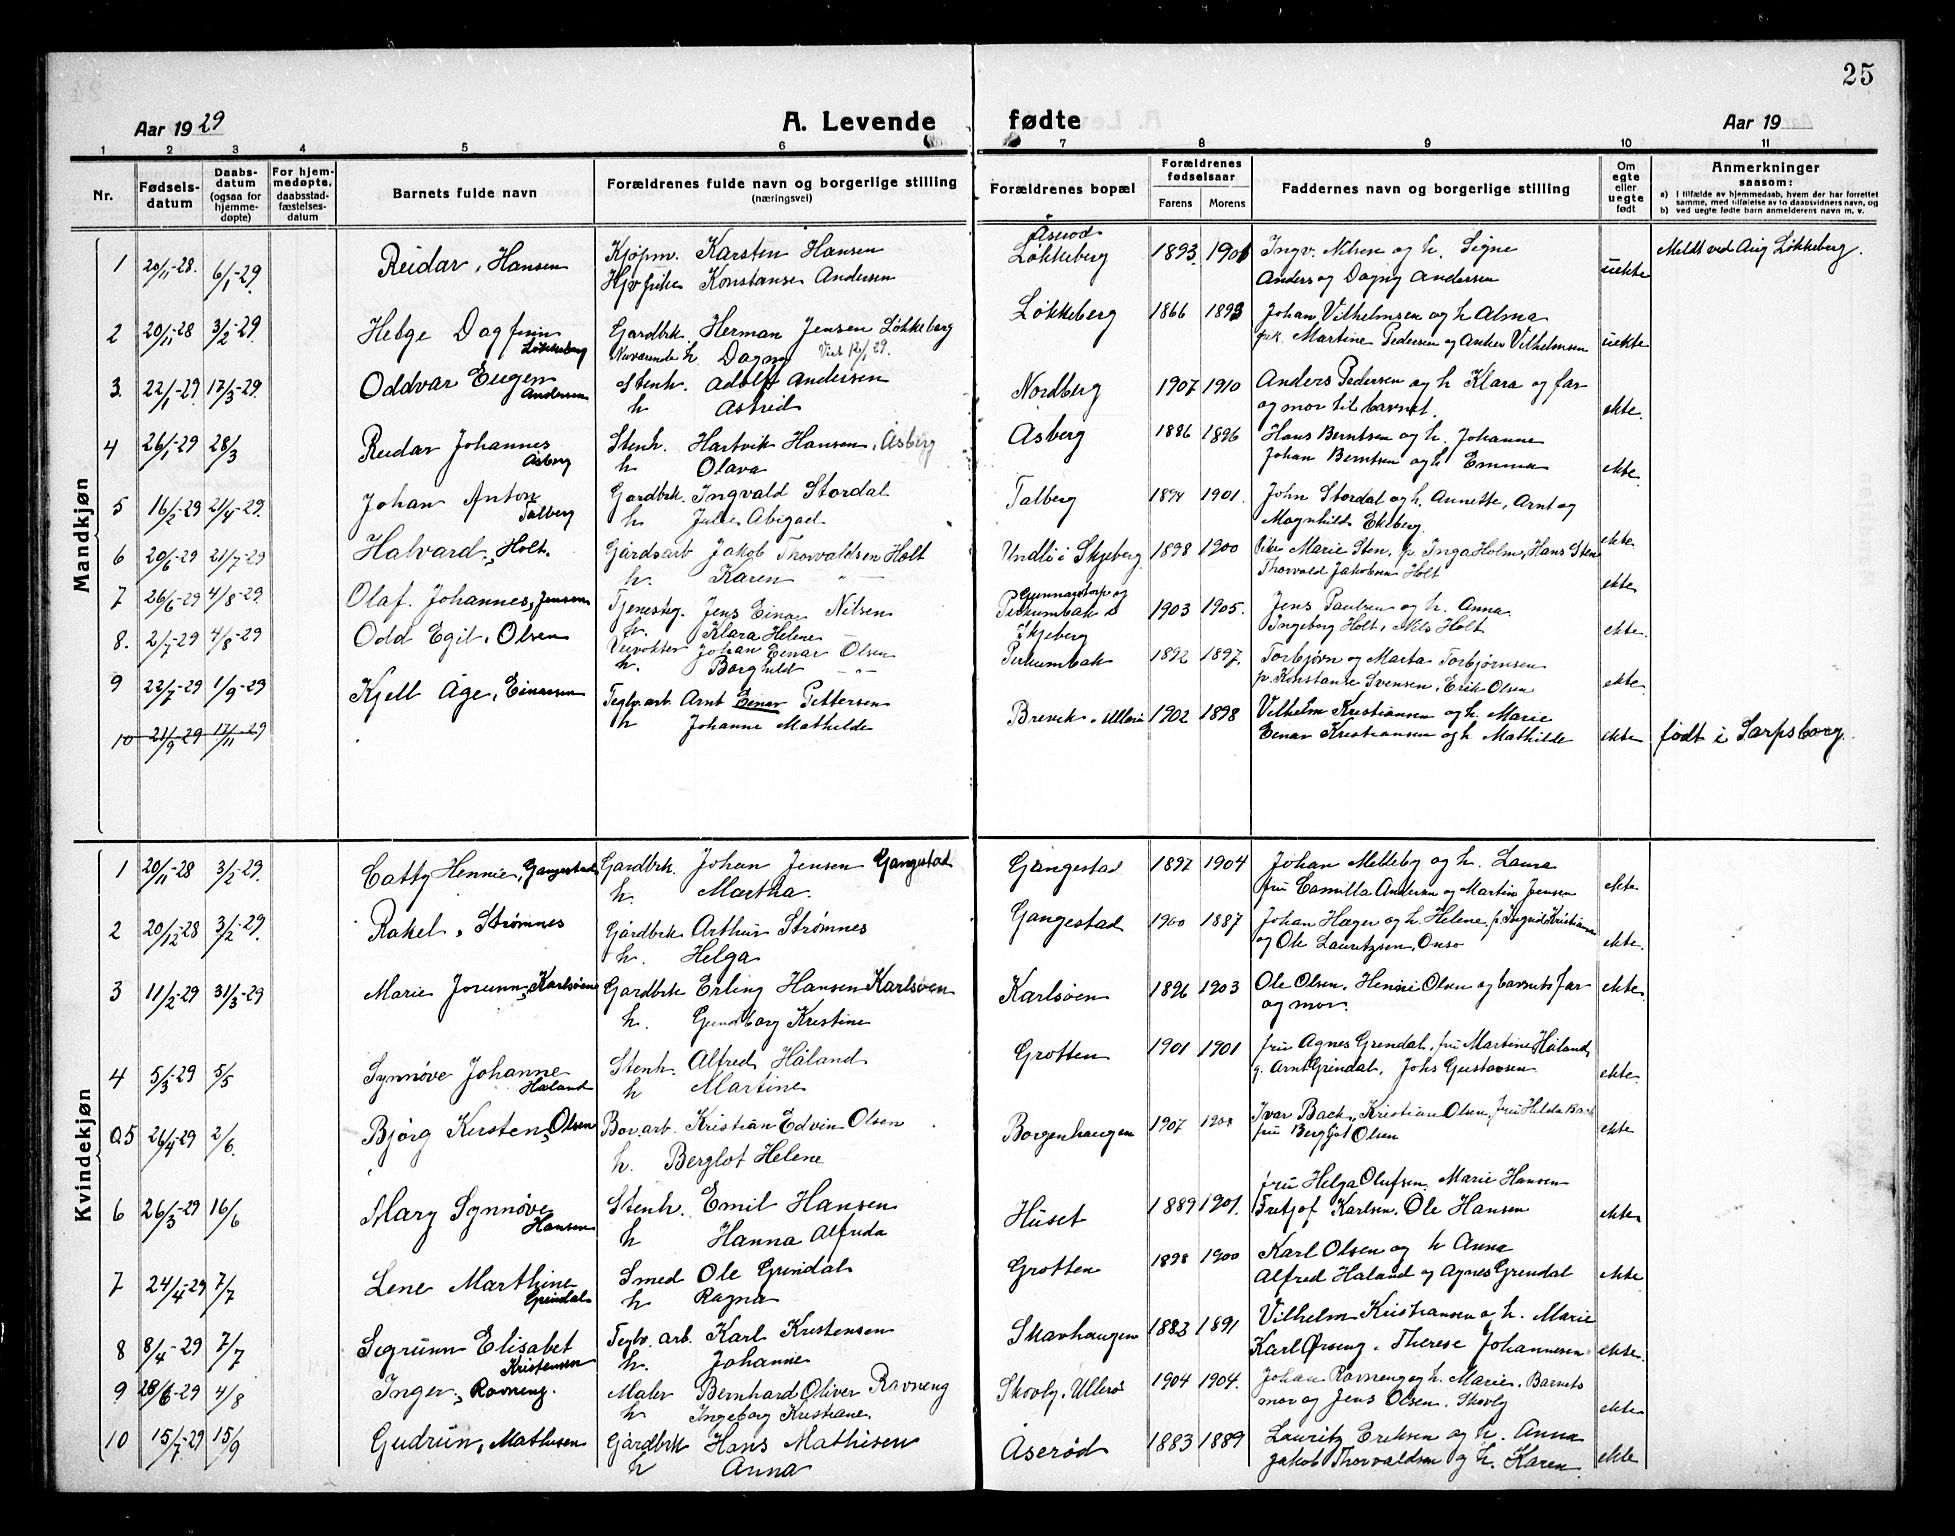 25
Aar 1929 A. Levende fødte Aar 19
1 2 3 4 5 6 7 8 9 10 11
Nr. Fødsels-datum Daabs-datum (ogsaa for hjemme-døpte) For hjem-medøpte, daabsstad-fæstelses-datum Barnets fulde navn Forældrenes fulde navn og borgerlige stilling (næringsvei) Forældrenes bopæl Forældrenes fødselsaar Farens Morens Faddernes navn og borgerlige stilling Om egte eller uegte født Anmerkninger saasom:
a) I tilfælde av hjemmedaab, hvem der har forrettet samme, med tilføielse av to daabsvidners navn, og
b) ved uegte fødte barn anmelderens navn m. v.
Mandkjøn
1 20/11-28. 6/1-29. Reidar, Hansen Kjøpm. Karsten Hansen Åserød Løkkeberg 1893 1901 Ingv. Nilsen og h. Signe uekte Meldt ved Aug Løkkeberg.
Konstanse Andersen Anders og Dagny Andersen
2 20/11-28 3/2-29. Helge Dagfinn Løkkeberg Gardbrk. Herman Jensen Løkkeberg Løkkeberg 1866 1893 Johan Vilhelmsen og h Alma uekte
Nuværende h. Dagny Viet 12/1 29. Martine Pedersen og Anker Vilhelmsen
3. 22/1-29 17/3-29. Oddvar Eugen Andersen Stenh. Adolf Andersen Nordberg 1907 1910 Anders Pedersen og h Klara og far ekte.
h Astrid og mor til barnet.
4 26/1-29 28/3 Reidar Johannes Åsberg Stenh. Hartvik Hansen, Åsberg Åsberg 1886 1896 Hans Berntsen og h. Johanne ekte.
h Olava Johan Berntsen og h Emma
5 16/2-29 21/4-29. Johan Anton Talberg Gardbrk. Ingvald Stordal Talberg 1894 1901. John Stordal og h. Annette, Arnt og ekte.
h Julie Abigael Magnhild Ekeberg.
6 20/6-29 21/7-29 Halvard, Holt. Gårdsarb Jakob Thorvaldsen Holt Undli i Skjeberg 1898 1900 Marie Sten, fr. Inga Holm, Hans Sten ekte
h. Karen — " — Thorvald Jakobsen Holt
7 26/6-29 4/8-29. Olaf. Johannes, Jensen Tjenestg. Jens Einar Nilsen Gunnarstorp og Perkumbak i Skjeberg 1903 1905. Jens Paulsen og h. Anna ekte.
h. Klara Helene — Ingeborg Holt, Nils Holt
8. 2/7-29 4/8-29 Odd Egil, Olsen Veivokter Johan Einar Olsen Perkumbak 1892 1897. Torbjørn og Marta Torbjørnsen ekte
h. Borghild — " — fr. Konstanse Svensen, Erik Olsen
9 22/7-29 1/9-29 Kjell Åge, Einarsen Teglv. arb. Arnt Einar Pettersen Brevik, Ullerøi 1902 1898 Vilhelm Kristiansen og h. Marie
h Johanne Mathilde Einar Kristiansen og h Mathilde ekte født i Sarpsborg.
10 21/9-29 17/11-29
Kvindekjøn
1 20/11-28 3/2-29. Catty Hennie, Gangestad Gardbrk. Johan Jensen Gangestad Gangestad 1897 1904 Johan Melleby og h. Laura ekte.
h. Martha. fru Camilla Andersen og Martin Jensen
2 20/12-28 3/2-29. Rakel, Strømnes Gårdbrk Arthur Strømnes Gangestad 1900 1887 Johan Hager og h. Helene, fr. Ingrid Kristiansen ekte.
h. Helga og Ole Lauritzsen, Onsø
3 11/2-29 31/3-29 Marie Jorunn, Karlsøen Gardbrk Erling Hansen Karlsøen Karlsøen 1896 1903 Ole Olsen, Henni Olsen og barnets far ekte.
h. Gundborg Kristine og mor.
4 5/3-29 5/5 Synnøve Johanne Håland Stenh. Alfred Håland Grotten 1901 1901 fru Agnes Grendal, fru Martine Håland, ekte.
h Martine g. Arnt Grindal, Johs Gustavsen
5 26/4-29 2/6. Bjørg Kirsten, Olsen Bov. arb. Kristian Edvin Olsen Borgenhaugen 1907 Ivar Back, Kristian Olsen, fru Hilda Back ekte
h. Berglot Helene fru Bergljot Olsen
6 26/3-29 16/6 Mary Synnøve Hansen Stenh. Emil Hansen Huset 1889 1901. fru Helga Olufsen, Marie Hansen
h Hanna Alfrida Fretjof Karlsen, Ole Hansen ekte
7 24/4-29 7/7 Lene Marthine Grindal Smed Ole Grindal Grotten 1898 1900 Karl Olsen og h Anna
h Ragna Alfred Håland og Agnes Grendal ekte
8 8/4-29 7/7 Segrunn Elisabet Kristensen Teglv. arb. Karl Kristensen Skavhaugen 1883 1891 Vilhelm Kristiansen og h. Marie
h. Johanne Karl Ørseng, Therese Johannesen ekte.
9 28/6-29 4/8 Inger, Ravneng. Maler Bernhard Oliver Ravneng Skovly, Ullerøi 1904 1904. Johan Ravneng og h. Marie. Barnets
h Ingeborg Kristiane. mor og Jens Olsen. Skovly ekte
10 15/7-29 15/9 Gudrun, Mathisen Gårdbrk Hans Mathisen Åserød 1883 1889 Lauritz Eriksen og h. Anna
h Anna Jakob Thorvaldsen og h. Karen. ekte